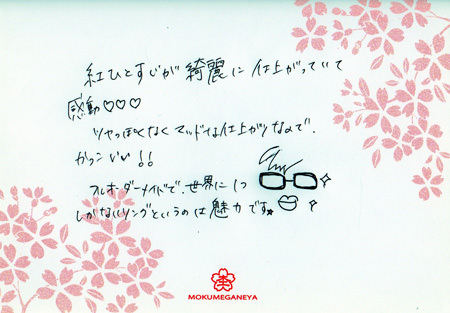 紅ひとすじが綺麗に仕上がっていて
感動♡♡♡
ツヤっぽくなくマットな仕上がりなので、
かっこいい!!
フルオーダーメイドで、世界に1つ
しかないリングというのは魅力です。
MOKUMEGANEYA